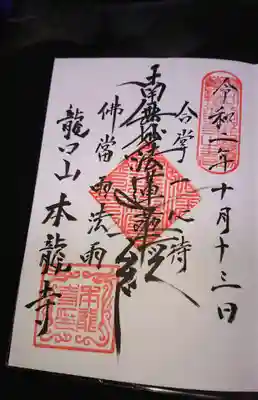 令和一年十月十三日
合掌一心待
南無妙法蓮華經
佛當雨法雨
龍口山本龍寺